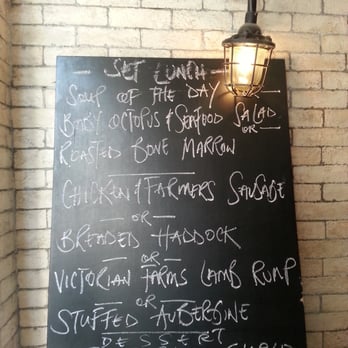 - SET LUNCH -
SOUP OF THE DAY
BABY OCTOPUS & SEAFOOD SALAD
- OR -
ROASTED BONE MARROW
CHICKEN & FARMERS SAUSAGE
- OR -
BREADED HADDOCK
- OR -
VICTORIAN FARMS LAMB RUMP
- OR -
STUFFED AUBERGINE
DESSERT